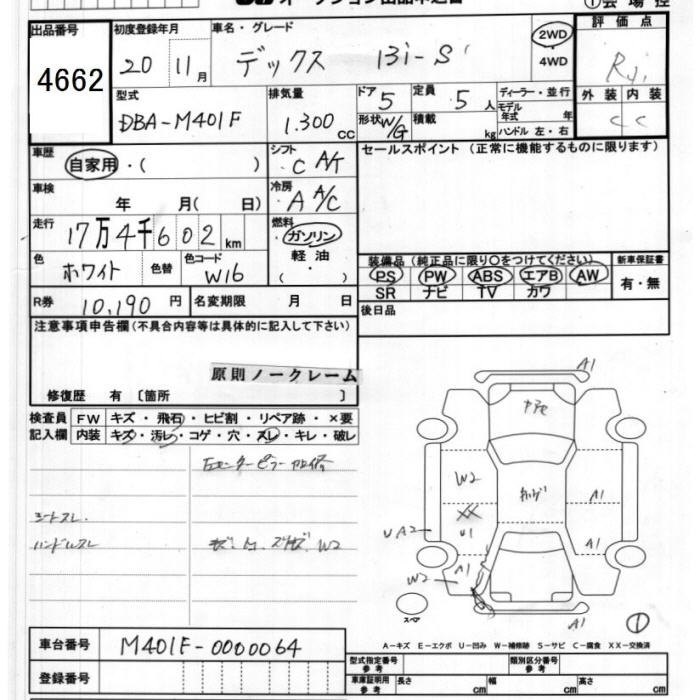 オークション出品申込書
①会場控
出品番号 初度登録年月 車名・グレード 評価点
4662
20 11月 デックス 13i-S 2WD 4WD
R
型式 排気量 ドア 5 定員 5人 ディーラー・並行 外装 内装
DBA-M401F 1.300 CC 形状 W/G 積載 kg モデル年式 年 C C
ハンドル 左・右
車歴 自家用・( ) シフト C A/T セールスポイント (正常に機能するものに限ります)
車検 年 月( 日) 冷房 A A/C
走行 17万4千602km 燃料 ガソリン 軽油 ( )
色 ホワイト 色替 色コード W16
装備品(純正品に限り○をつけてください) 新車保証書
PS PW ABS エアB AW 有・無
SR ナビ TV カワ
R券 10,190円 名変期限 月 日 後日品
注意事項申告欄(不具合内容等は具体的に記入して下さい)
原則ノークレーム
修復歴 有 〔箇所 〕
検査員 FW キズ・飛石・ヒビ割・リペア跡・×要
記入欄 内装 キズ・汚レ・コゲ・穴・スレ・キレ・破レ
シートスレ
ハンドルスレ W2
A1
W2
XX
A1
UA2 U1 A1
W2 A1
A1
スペア
①
A-キズ E-エクボ U-凹み W-補修跡 S-サビ C-腐食 XX-交換済
車台番号 M401F-0000064
型式指定番号 参考 類別区分番号 参考
登録番号 車庫証明用 参考 長さ cm 幅 cm 高さ cm